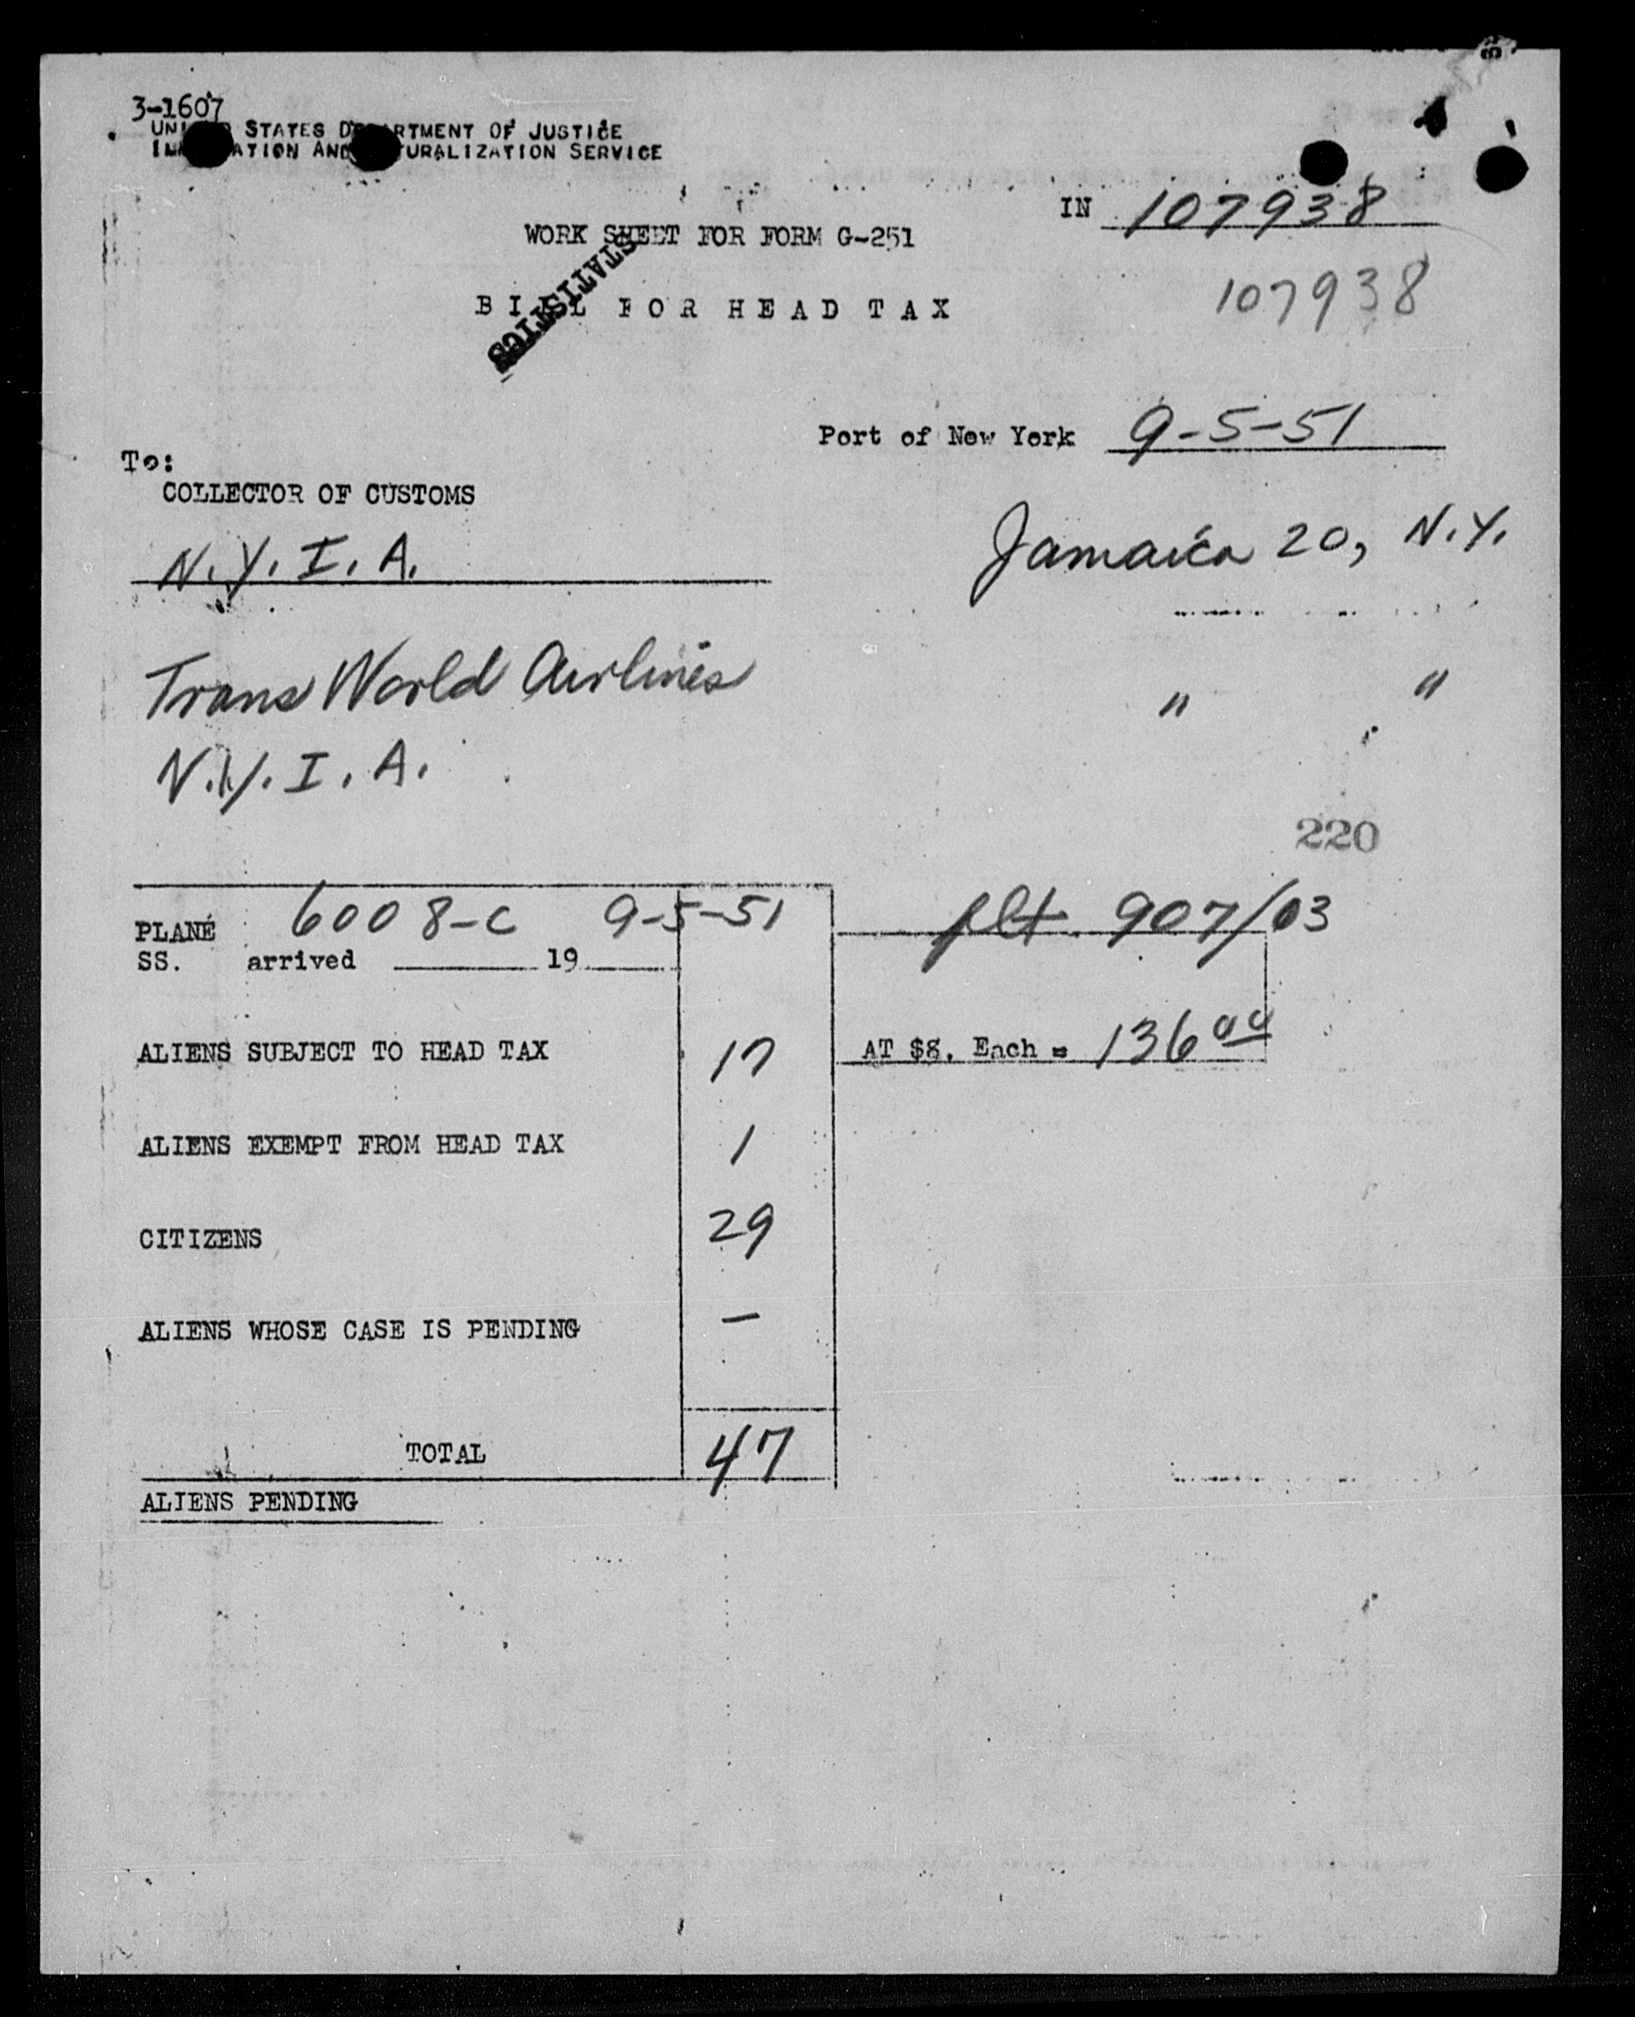 3-1607
UNITED STATES DEPARTMENT OF JUSTICE
IMMIGRATION AND NATURALIZATION SERVICE
IN 107938
WORK SHEET FOR FORM G-251
107938
STATISTICS
BILL FOR HEAD TAX
Port of New York 9-5-51
To:
COLLECTOR OF CUSTOMS
N.Y.I.A. Jamaica 20, N.Y.
Trans World Airlines " "
N.Y.I.A.
220
PLANE 6008-C 9-5-51 flt 907/03
SS. arrived 19
ALIENS SUBJECT TO HEAD TAX 17 AT $8. Each = 136 00
ALIENS EXEMPT FROM HEAD TAX 1
CITIZENS 29
ALIENS WHOSE CASE IS PENDING —
TOTAL 47
ALIENS PENDING